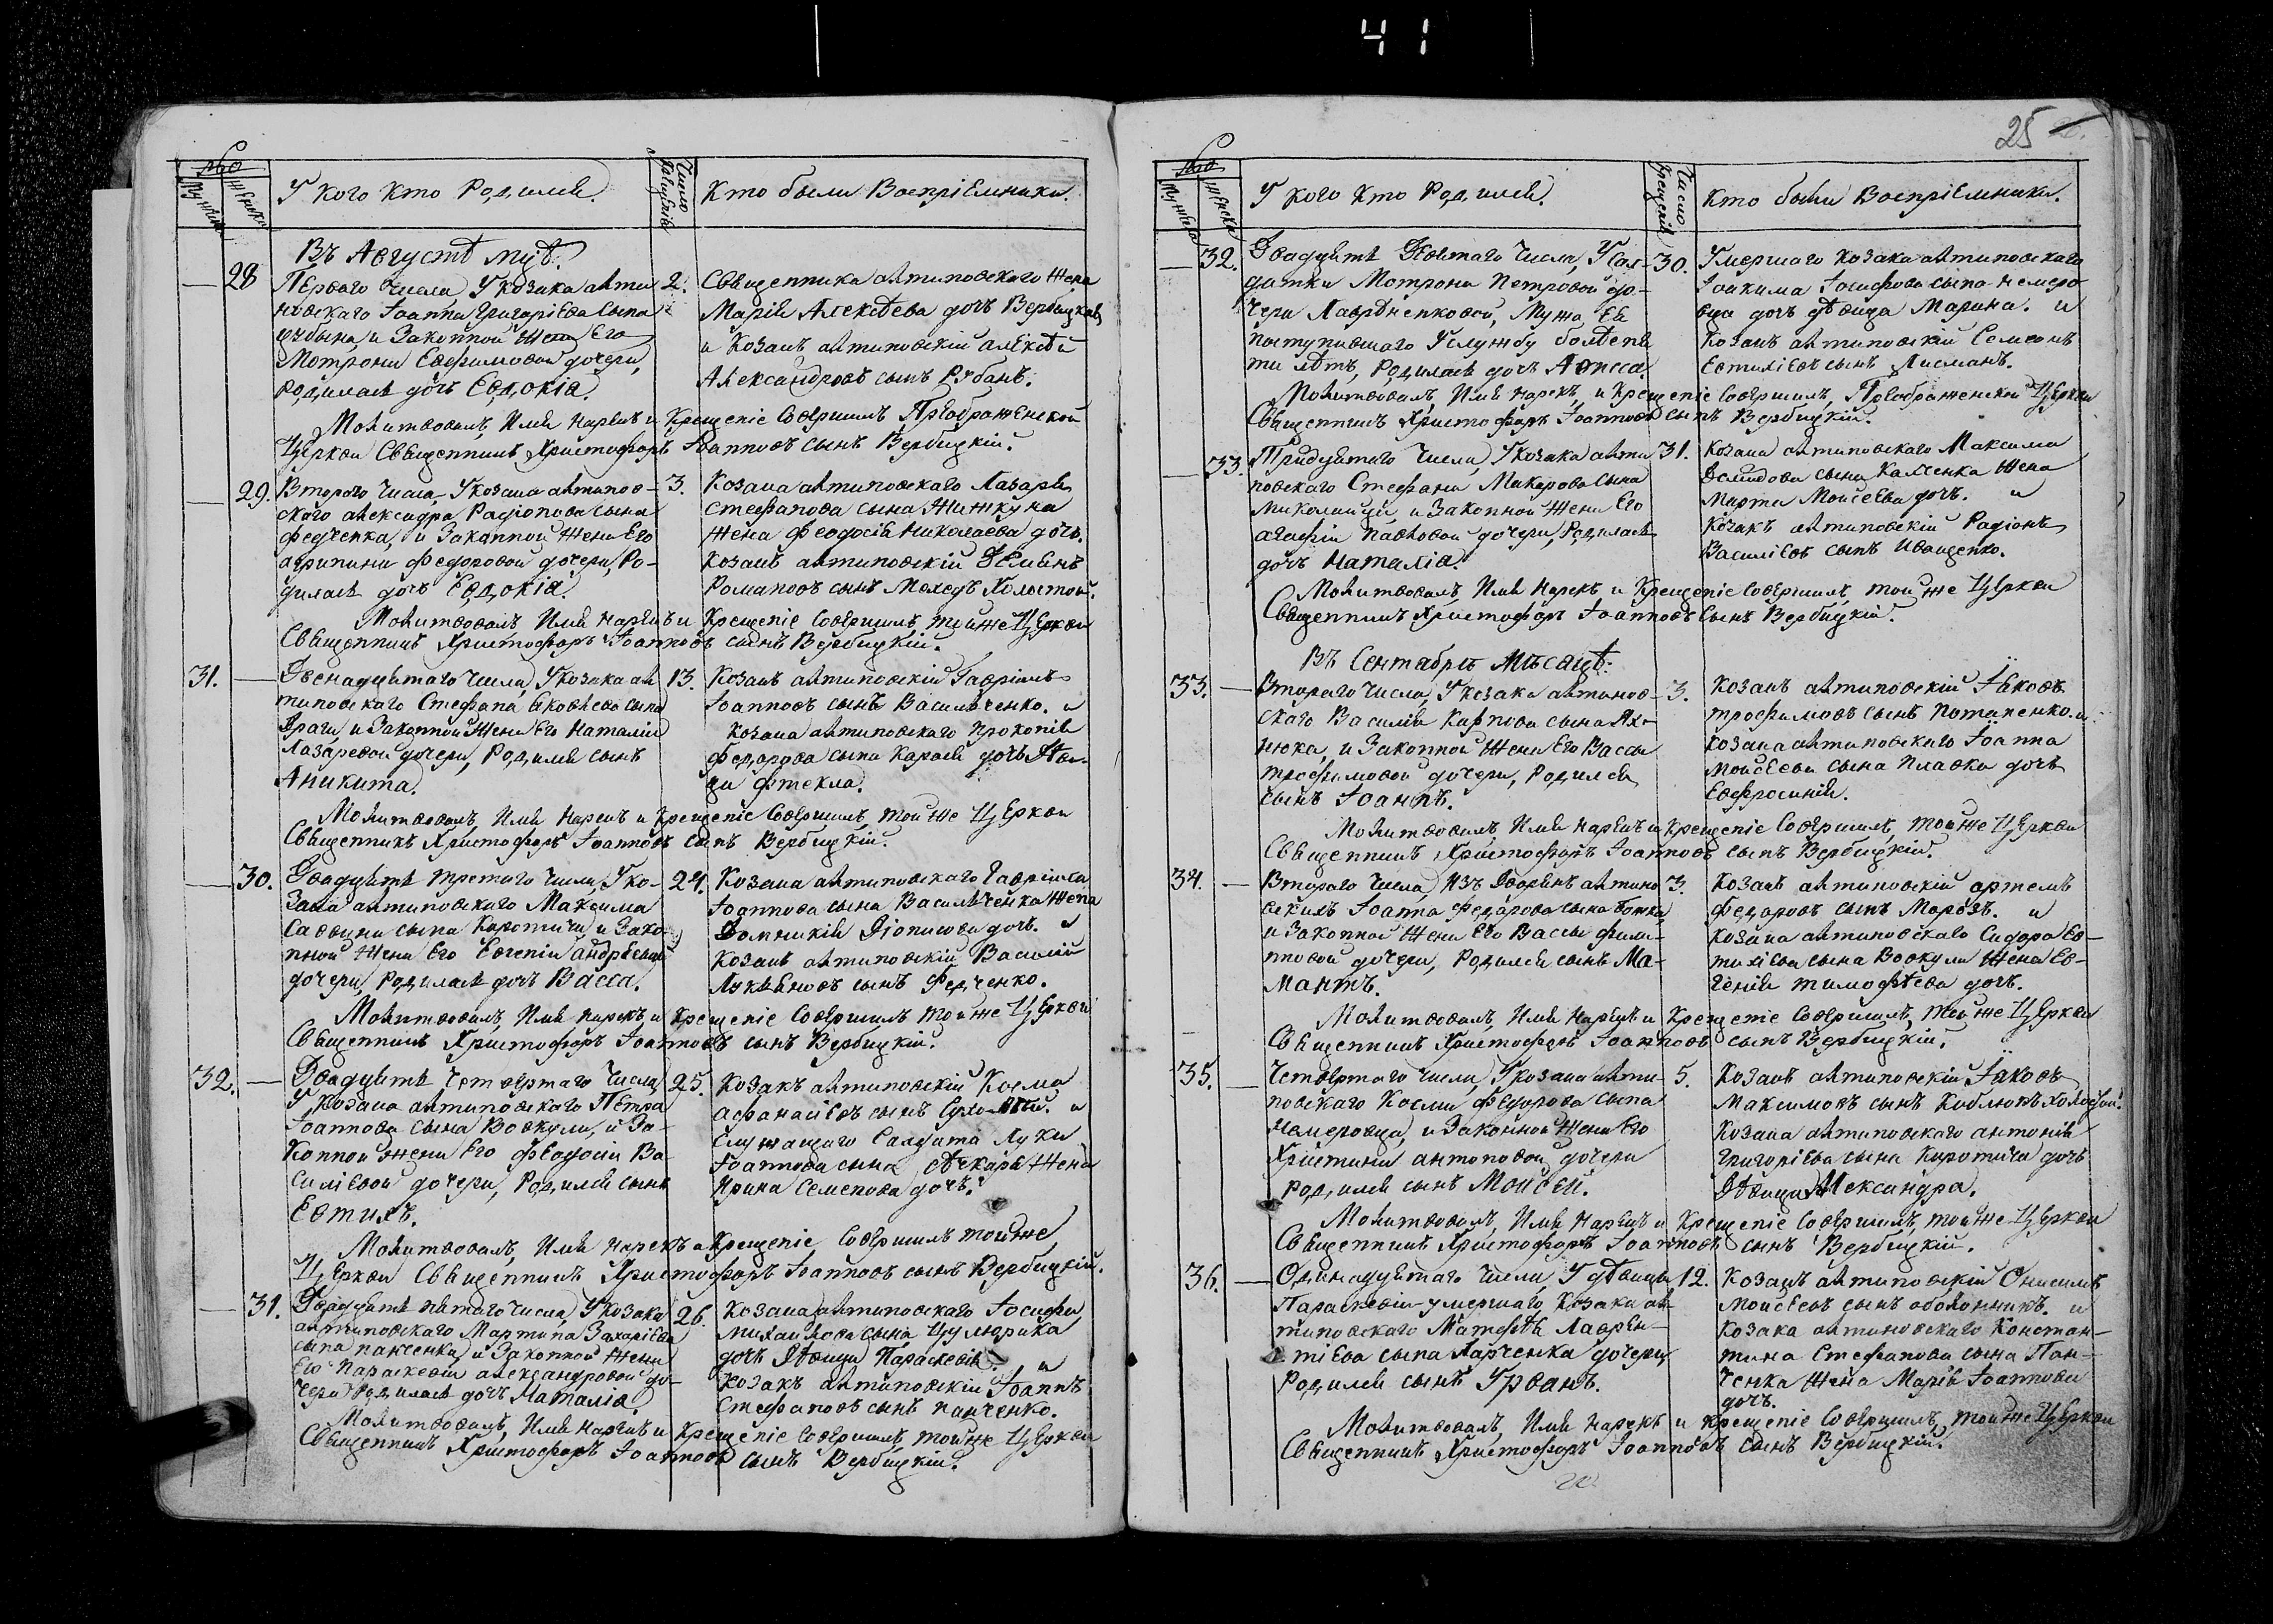 41
25
№
Мужеска
Женска
У кого кто родился.
Число крещенія
Кто были воспріемники.
Въ Августѣ мцѣ.
28
Перваго числа, У козака анти
повскаго Іоанна Григоріева сына
и Законной жены Его
Мотроны Евфимовой дочери,
родилась дочь Евдокіа.
2.
Священника антиповскаго жена
Марія Алексѣева дочь Вербицкая
и Козакъ антиповскій алексѣй
Александровъ сынъ Рубанъ.
Молитвовалъ, Имя нарекъ и Крещеніе совершилъ Преображенской
Церкви Священникъ Христофоръ Іоанновъ сынъ Вербицкій.
29.
Второго числа, У козака антипов-
ского александра Радіонова сына
Федченка, и Законной жены Его
агрипины федоровой дочери, Ро-
дилась дочь Евдокіа.
3.
Козака антиповскаго Лазаря
стефанова сына Жижкуна
жена Феодосія николаева дочь.
Козакъ антиповскій Демянъ
Романовъ сынъ Холостой.
Молитвовалъ, Имя нарекъ и Крещеніе совершилъ, той же Церкви
Священникъ Христофоръ Іоанновъ сынъ Вербицкій.
31.
Двенадцятаго числа, У козака ан
типовскаго Стефана Яковлева сына
Драги и Законной жены Его Наталіи
Лазаревой дочери, родился сынъ
Аникита.
13.
Козакъ антиповскій Гавріилъ
Іоанновъ сынъ Васильченко. и
козака антиповскаго прокопія
федорова сына Карася дочь Дѣви-
ца фтекла.
Молитвовалъ, Имя нарекъ и Крещеніе совершилъ, той же Церкви
Священникъ Христофоръ Іоанновъ сынъ Вербицкій.
30.
Двадцять третаго числа, У ко-
зака антиповскаго Максима
Саввина сына Коротича и Зако-
нной жены Его Евгеніи андреевой
дочери, родилась дочь Васса.
24.
Козака антиповскаго Гавріила
Іоаннова сына Васильченка жена
Домникія Діонисова дочь. и
козакъ антиповскій Василій
Лукьяновъ сынъ Федченко.
Молитвовалъ, Имя нарекъ и Крещеніе совершилъ той же Церкви
Священникъ Христофоръ Іоанновъ сынъ Вербицкій.
32.
Двадцять Четвертаго числа,
У козака антиповскаго Петра
Іоаннова сына Вовкули, и За-
конной жены Его феодосіи Ва-
силіевой дочери, родился сынъ
Евтихъ.
25.
Козакъ антиповскій Косма
афанасіевъ сынъ и
служащаго Салдата Луки
Іоаннова сына жена
Ирина Семенова дочь.
Молитвовалъ, Имя нарекъ и Крещеніе совершилъ той же
Церкви Священникъ Христофоръ Іоанновъ сынъ Вербицкій.
31.
Двадцять пятаго числа, У козака
антиповскаго Мартина Захаріева
сына панченка, и Законной жены
Его Параскевіи александровой до-
чери родилась дочь Наталіа.
26.
Козака антиповскаго Іосифа
михайлова сына Цулюрика
дочь Дѣвица Параскевія. и
козакъ антиповскій Іоаннъ
Стефановъ сынъ панченко.
Молитвовалъ, Имя нарекъ и Крещеніе совершилъ, той же Церкви
Священникъ Христофоръ Іоанновъ сынъ Вербицкій.
№
Мужеска
Женска
У кого кто родился.
Число крещенія
Кто были Воспріемники.
32.
Двадцять Девятаго числа, У сол-
датки Мотроны Петровой до-
чери Лаврѣненковой, Мужа Ея
поступившаго У службу болѣе пя
ти лѣтъ, родилась дочь
30.
Умершаго козака антиповскаго
Іоакима Іосифова сына немеро-
вца дочь дѣвица Марина. и
Козакъ антиповскій Семеонъ
Евтихіевъ сынъ Лисманъ.
Молитвовалъ, Имя нарекъ, и Крещеніе совершилъ, Преображенской Церкви
Священникъ Христофоръ Іоанновъ сынъ Вербицкій.
33.
Тридцятаго числа, У козака анти
повскаго Стефана Макарова сына
миколаица, и Законной жены Его
агафіи павловой дочери, родилась
дочь Наталіа.
31.
Козака антиповскаго Максима
Демидова сына Калченка жена
Марта Моисеева дочь. и
козакъ антиповскій Радіонъ
Василіевъ сынъ Иващенко.
Молитвовалъ, Имя нарекъ и Крещеніе совершилъ, той же Церкви
Священникъ Христофоръ Іоанновъ сынъ Вербицкій.
Въ Сентябрѣ Мѣсяцѣ.
33.
Втораго числа, У козака антипов-
скаго Василія Карпова сына Ях-
нюка, и Законной жены Его Вассы
трофимовой дочери, родился
сынъ Іоаннъ.
3.
Козакъ антиповскій Іяковъ
трофимовъ сынъ Потапенко. и
козака антиповскаго Іоанна
Моисеева сына Плавка дочь
Евфросинія.
Молитвовалъ, Имя нарекъ и Крещеніе совершилъ, той же Церкви
Священникъ Христофоръ Іоанновъ сынъ Вербицкій.
34.
Втораго числа, Изъ Дворянъ антипо
вскихъ Іоанна Федорова сына Божка,
и Законной жены Его Вассы фили-
пповой дочери, родился сынъ Ма-
мантъ.
3.
Козакъ антиповскій артемъ
Федоровъ сынъ Морозъ. и
козака антиповскаго Сидора Ев-
тихіева сына Вовкули жена Ев-
генія тимофѣева дочь.
Молитвовалъ, Имя нарекъ и Крещеніе совершилъ, той же Церкви
Священникъ Христофоръ Іоанновъ сынъ Вербицкій.
35.
Четвертаго числа, У козака анти-
повскаго Космы федорова сына
Немеровца, и Законной жены Его
Христины антоновой дочери
родился сынъ Моисей.
5.
Козакъ антиповскій Іаковъ
Максимовъ сынъ Коблюкъ холостой.
Козака антиповскаго антонія
Григоріева сына Коротича дочь
Дѣвица Александра.
Молитвовалъ, Имя нарекъ и Крещеніе совершилъ, той же Церкви
Священникъ Христофоръ Іоанновъ сынъ Вербицкій.
36.
Одинадцятаго числа, У дѣвицы
Параскевіи умершаго Козака ан-
типовскаго Матфѣя Лаврен-
тіева сына Харченка дочери
родился сынъ Урванъ.
12.
Козакъ антиповскій Онисимъ
Моисеевъ сынъ оболонникъ. и
козака антиповскаго Констан-
тина Стефанова сына Пан-
ченка жена Марія Іоаннова
дочь.
Молитвовалъ, Имя нарекъ и крещеніе совершилъ, той же Церкви
Священникъ Христофоръ Іоанновъ сынъ Вербицкій.